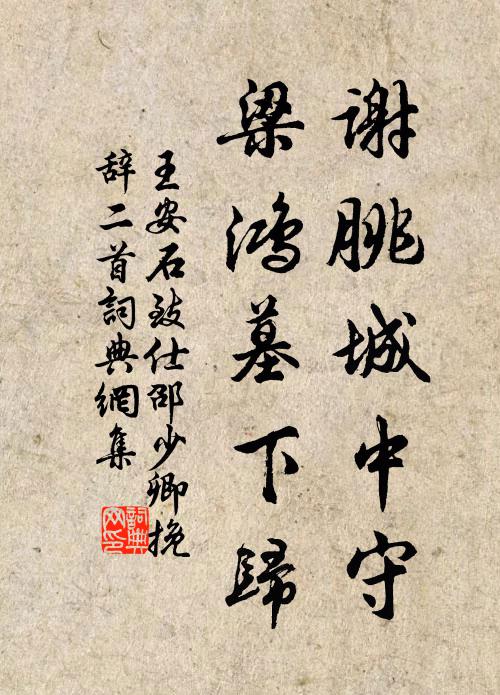 谢脁城中守
梁鸿墓下歸
王安石致仕邵少卿挽
辞二首詞典網集
詞典网印